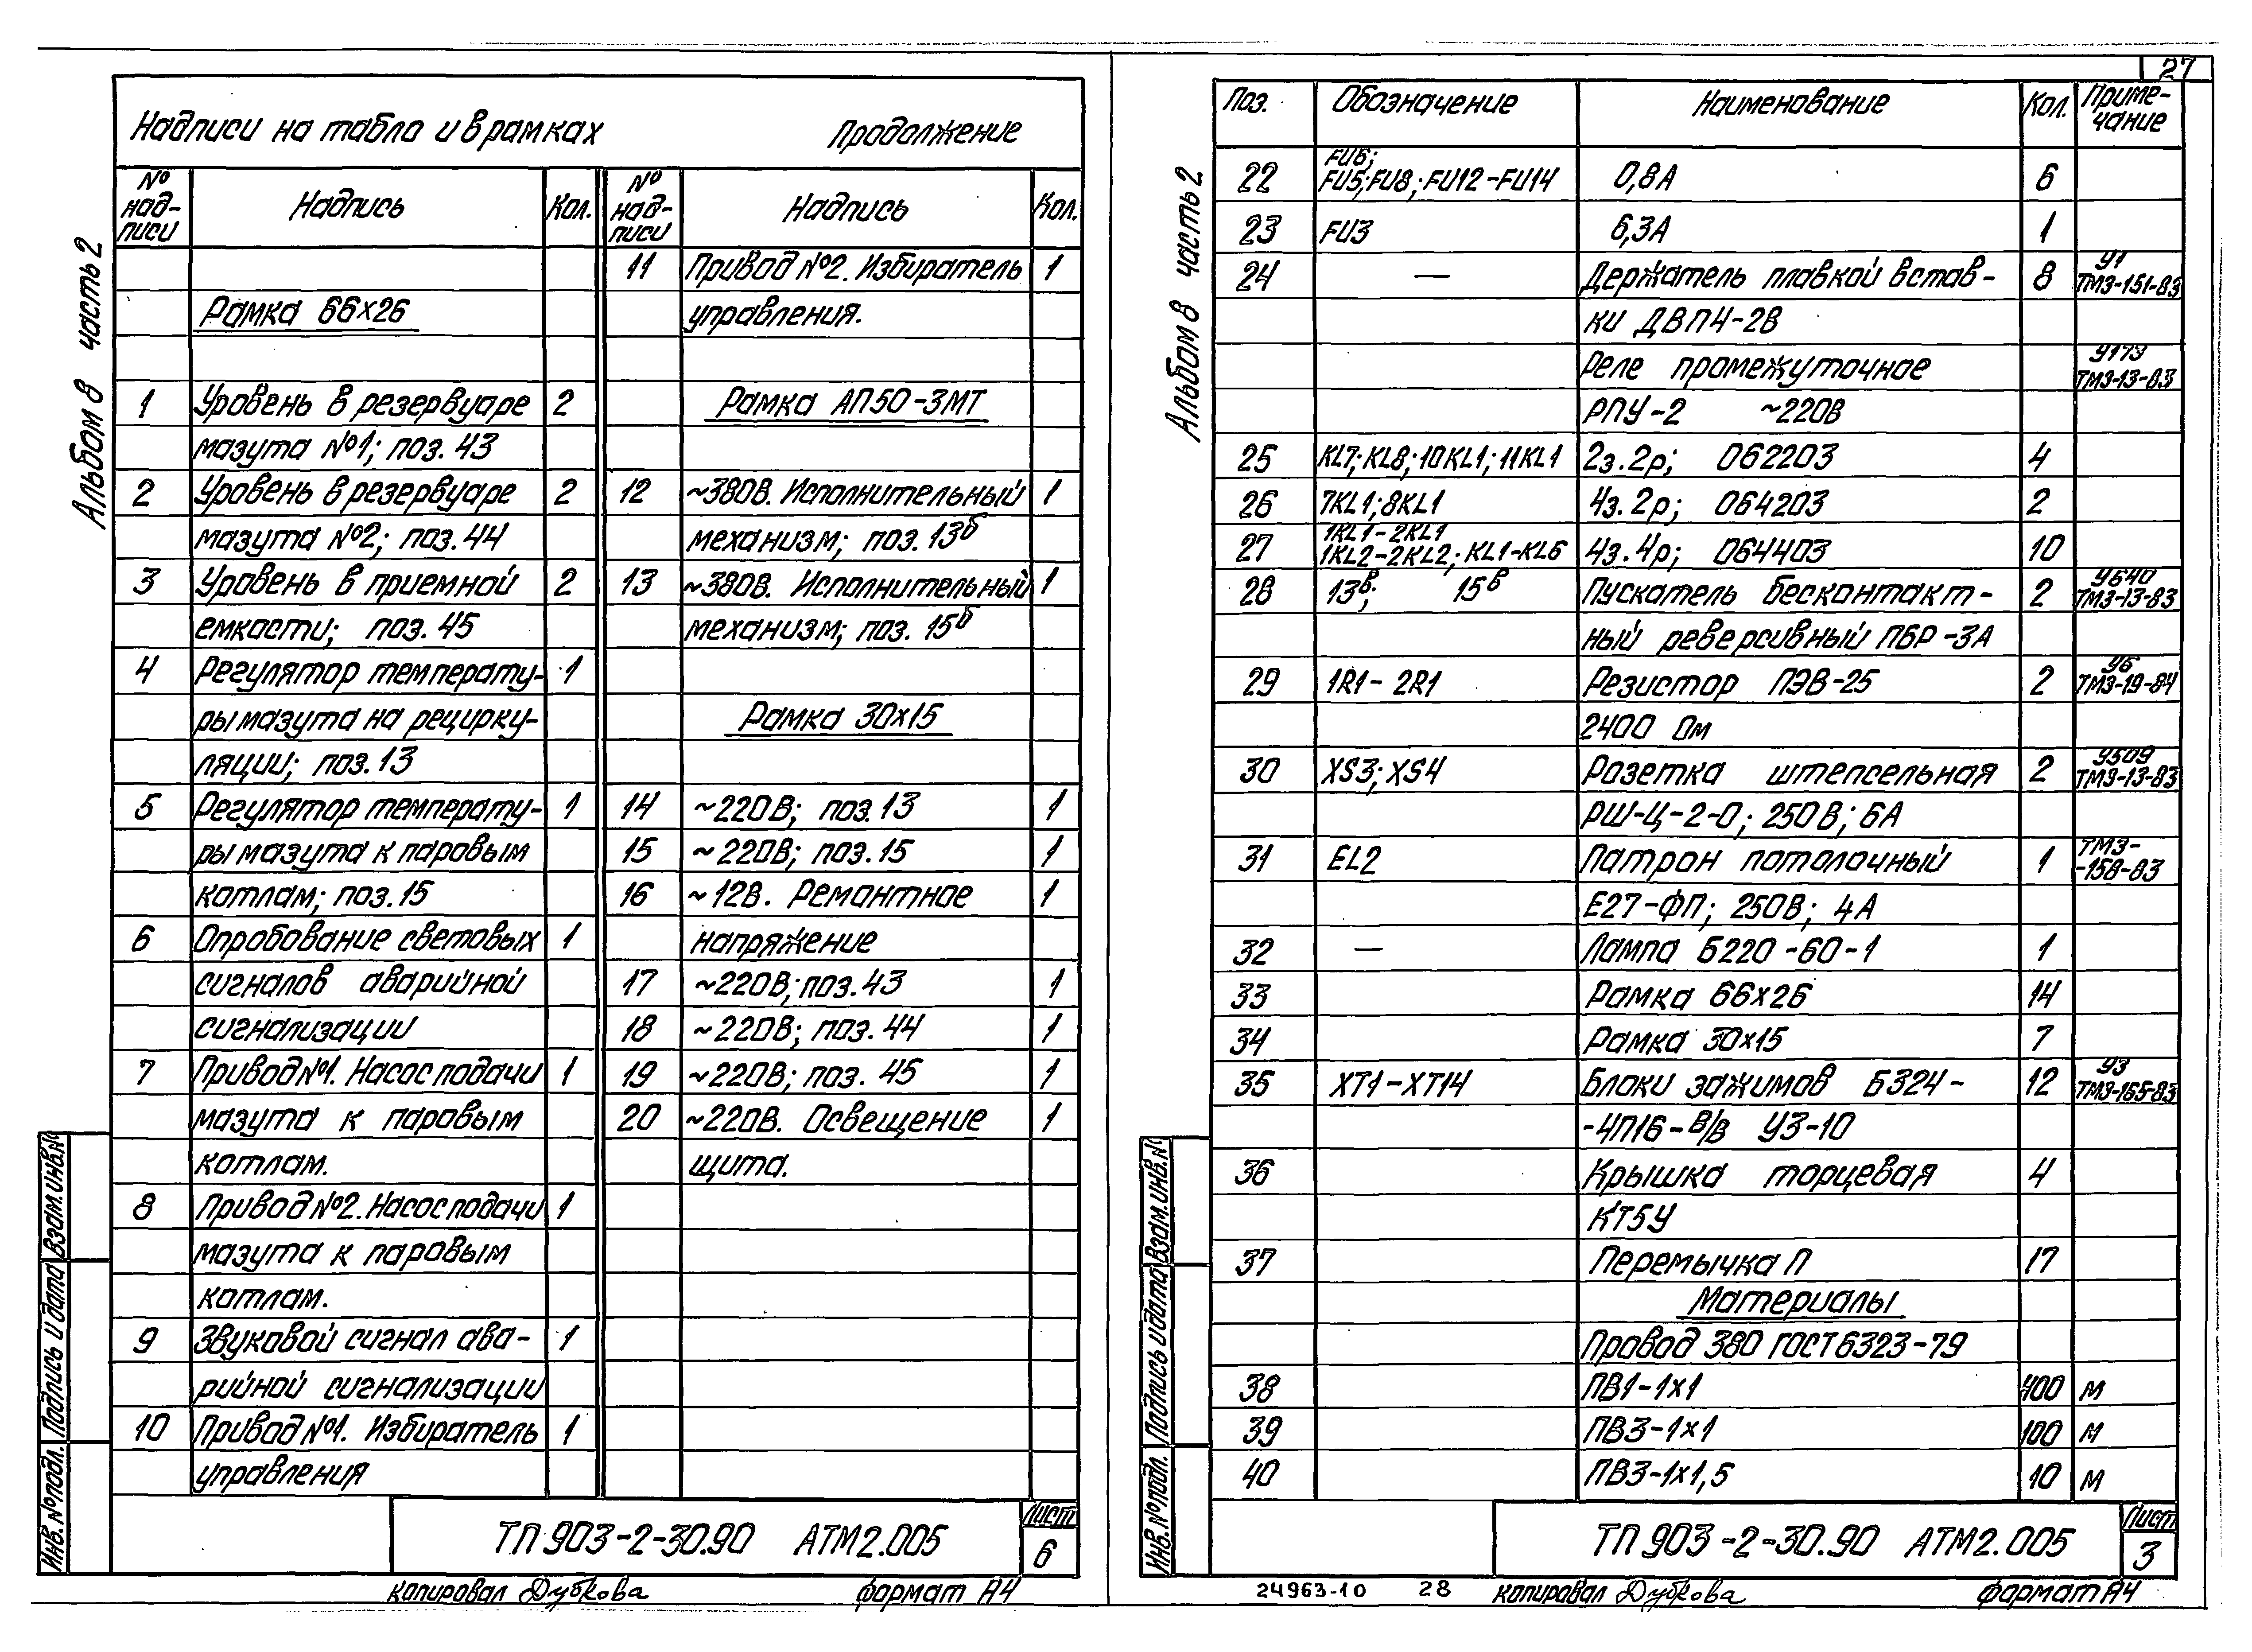 27
Альбом 8 часть 2
Надписи на табло и в рамках Продолжение
№ надписи Надпись Кол. № надписи Надпись Кол.
Рамка 66х26
1 Уровень в резервуаре 2
мазута №1; поз. 43
2 Уровень в резервуаре 2
мазута №2; поз. 44
3 Уровень в приемной 2
емкости; поз. 45
4 Регулятор температу- 1
ры мазута на рецирку-
ляции; поз. 13
5 Регулятор температу- 1
ры мазута к паровым
котлам; поз. 15
6 Опробование световых 1
сигналов аварийной
сигнализации
7 Привод №1. Насос подачи 1
мазута к паровым
котлам.
8 Привод №2. Насос подачи 1
мазута к паровым
котлам.
9 Звуковой сигнал ава- 1
рийной сигнализации
10 Привод №1. Избиратель 1
управления
11 Привод №2. Избиратель 1
управления.
Рамка АП50-3МТ
12 ~380В. Исполнительный 1
механизм; поз. 13б
13 ~380В. Исполнительный 1
механизм; поз. 15б
Рамка 30х15
14 ~220В; поз. 13 1
15 ~220В; поз. 15 1
16 ~12В. Ремонтное 1
напряжение
17 ~220В; поз. 43 1
18 ~220В; поз. 44 1
19 ~220В; поз. 45 1
20 ~220В. Освещение 1
щита.
Взам. инв. №
Подпись и дата
Инв. № подл.
ТП 903-2-30.90 АТМ2.005
Лист
6
копировал Дубкова формат А4
Альбом 8 часть 2
Поз. Обозначение Наименование Кол. Приме-
чание
FU6;
22 FU5; FU8; FU12-FU14 0,8А 6
23 FU3 6,3А 1
24 — Держатель плавкой встав- 8 У1 ТМ3-151-83
ки ДВП4-2В
Реле промежуточное У173 ТМ3-13-83
РПУ-2 ~220В
25 KL7; KL8; 10KL1; 11KL1 2з. 2р; 062203 4
26 7KL1; 8KL1 4з. 2р; 064203 2
1KL1-2KL1
27 1KL2-2KL2; KL1-KL6 4з. 4р; 064403 10
28 13в; 15в Пускатель бесконтакт- 2 У640 ТМ3-13-83
ный реверсивный ПБР-3А
29 1R1-2R1 Резистор ПЭВ-25 2 У6 ТМ3-19-84
2400 Ом
30 XS3; XS4 Розетка штепсельная 2 У509 ТМ3-13-83
РШ-Ц-2-0; 250В; 6А
31 EL2 Патрон потолочный 1 ТМ3-
-158-83
Е27-ФП; 250В; 4А
32 — Лампа Б220-60-1 1
33 Рамка 66х26 14
34 Рамка 30х15 7
35 XT1-XT14 Блоки зажимов Б324- 12 У3 ТМ3-165-83
-4П16-В/В У3-10
36 Крышка торцевая 4
КТ5У
37 Перемычка П 17
Материалы
Провод 380 ГОСТ 6323-79
38 ПВ1-1х1 400 м
39 ПВ3-1х1 100 м
40 ПВ3-1х1,5 10 м
Взам. инв. №
Подпись и дата
Инв. № подл.
ТП 903-2-30.90 АТМ2.005
Лист
3
24963-10 28 копировал Дубкова формат А4